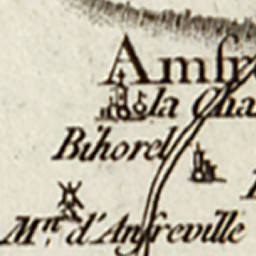 Amfre
la Cha
Bihorel
M.ⁿ d'Anfreville